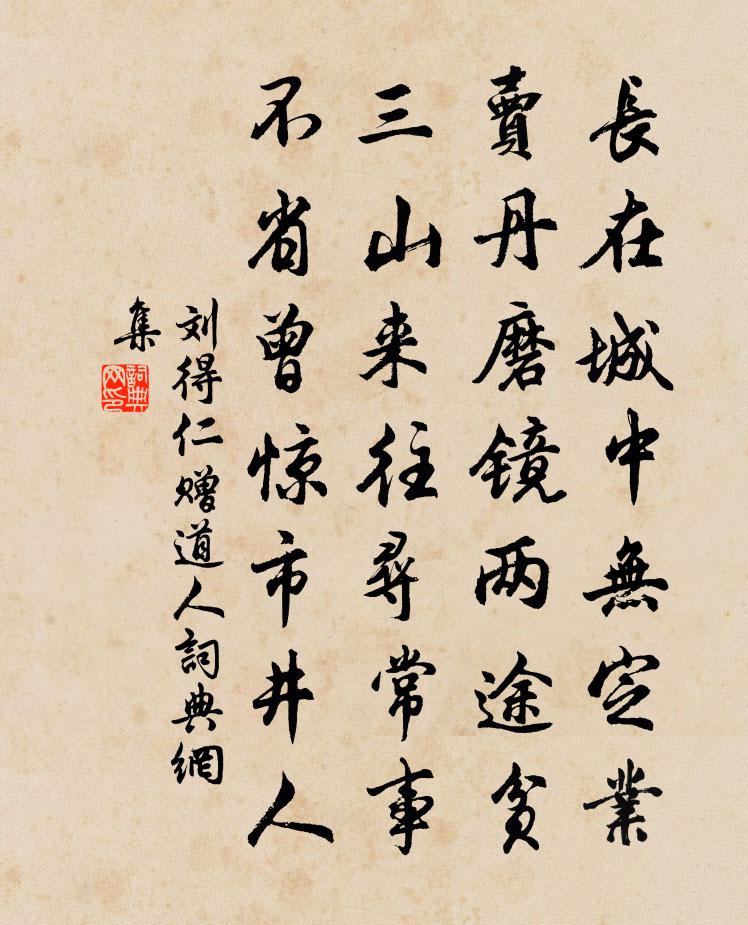 長在城中無定業
賣丹磨镜两途貧
三山来往尋常事
不省曾惊市井人
刘得仁赠道人詞典網
集
詞典
网印